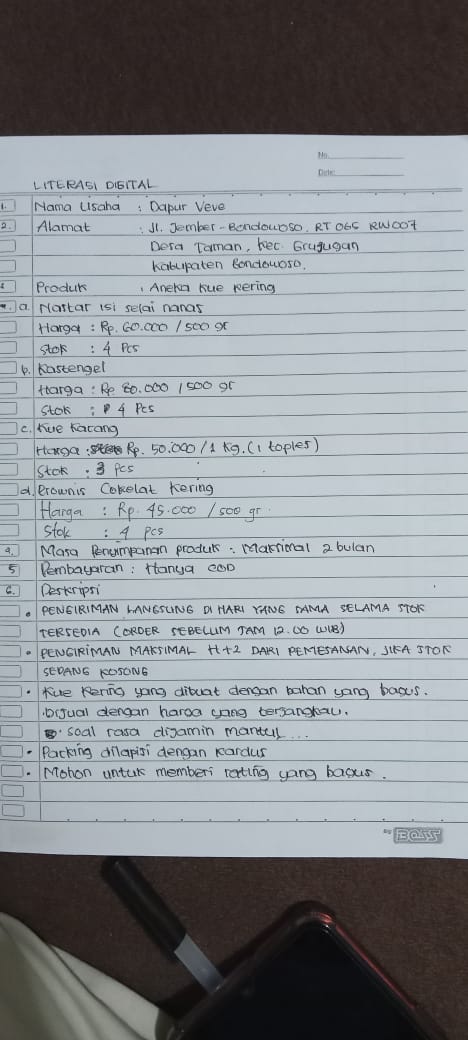 No.
Date:
LITERASI DIGITAL
1. Nama Usaha : Dapur Veve
2. Alamat : Jl. Jember - Bondowoso, RT 065 RW 007
Desa Taman, Kec. Grujugan
Kabupaten Bondowoso.
Produk : Aneka Kue Kering
a. Nastar isi selai nanas
Harga : Rp. 60.000 / 500 gr
Stok : 4 Pcs
b. Kastengel
Harga : Rp 80.000 / 500 gr
Stok : 4 Pcs
c. Kue Karang
Harga : Rp. 50.000 / 1 Kg. (1 toples)
Stok : 3 Pcs
d. Brownis Cokelat Kering
Harga : Rp. 45.000 / 500 gr.
Stok : 4 Pcs
4. Masa Penyimpanan produk : Maksimal 2 bulan
5 Pembayaran : Hanya COD
6. Deskripsi
• PENGIRIMAN LANGSUNG DI HARI YANG SAMA SELAMA STOK
TERSEDIA (ORDER SEBELUM JAM 12.00 WIB)
• PENGIRIMAN MAKSIMAL H+2 DARI PEMESANAN, JIKA STOK
SEDANG KOSONG
• Kue Kering yang dibuat dengan bahan yang bagus.
• Dijual dengan harga yang terjangkau.
• soal rasa dijamin mantul...
• Packing dilapisi dengan kardus
• Mohon untuk memberi rating yang bagus.
by BOSS